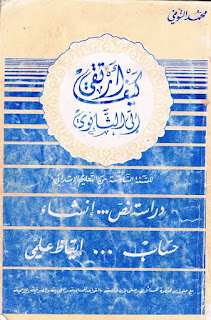 محمد النومي
كيف أرتقي
إلى الثانوي
للسنة السادسة من التعليم الابتدائي
دراسة نص ... إنشاء
حساب ... إيقاظ علمي